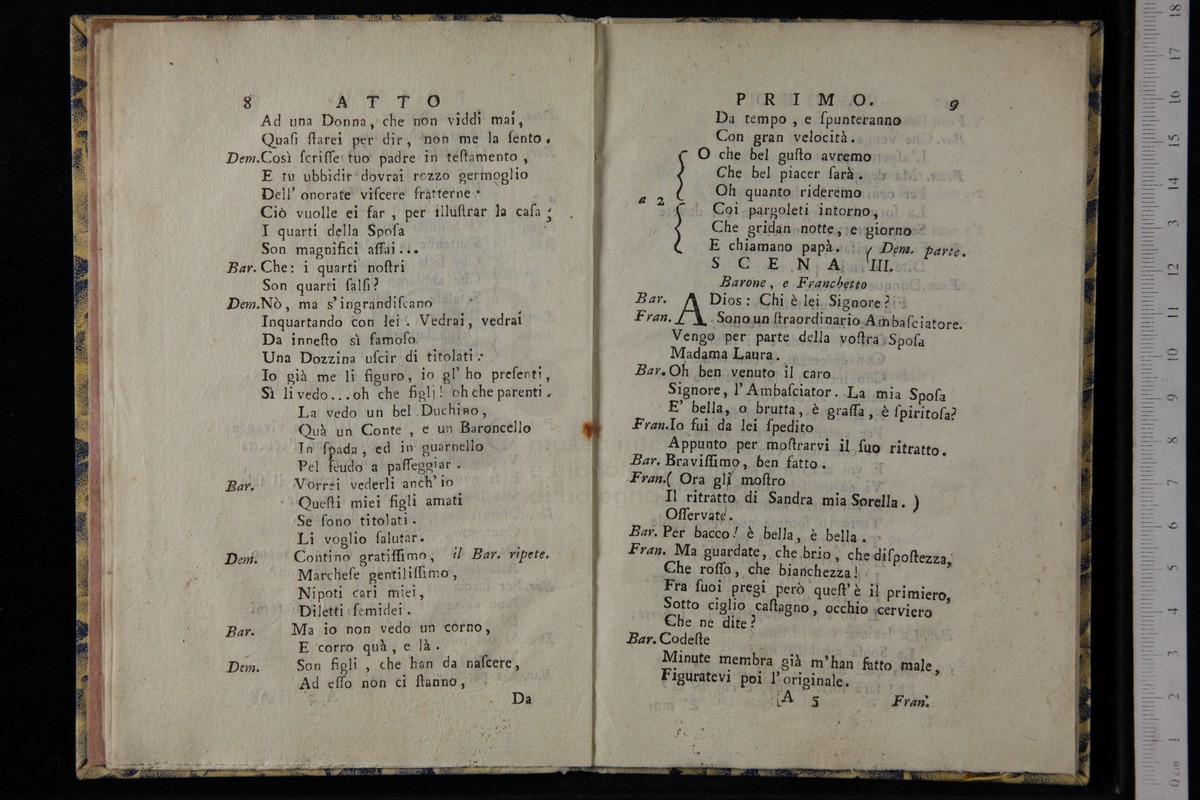 8 ATTO
Ad una Donna, che non viddi mai,
Quaſi ſtarei per dir, non me la ſento.
Dem. Così ſcriſſe tuo padre in teſtamento,
E tu ubbidir dovrai rozzo germoglio
Dell' onorate viſcere fratterne.
Ciò vuolle ei far, per illuſtrar la caſa;
I quarti della Spoſa
Son magnifici aſſai...
Bar. Che: i quarti noſtri
Son quarti falſi?
Dem. Nò, ma s'ingrandiſcano
Inquartando con lei. Vedrai, vedrai
Da inneſto sì famoſo
Una Dozzina uſcir di titolati.
Io già me li figuro, io gl' ho preſenti,
Sì li vedo... oh che figlj! oh che parenti.
La vedo un bel Duchino,
Quà un Conte, e un Baroncello
In ſpada, ed in guarnello
Pel feudo a paſſeggiar.
Bar. Vorrei vederli anch' io
Queſti miei figli amati
Se ſono titolati.
Li voglio ſalutar.
Dem. Contino gratiſſimo, il Bar. ripete.
Marcheſe gentiliſſimo,
Nipoti cari miei,
Diletti ſemidei.
Bar. Ma io non vedo un corno,
E corro quà, e là.
Dem. Son figli, che han da naſcere,
Ad eſſo non ci ſtanno,
Da
PRIMO. 9
Da tempo, e ſpunteranno
Con gran velocità.
O che bel guſto avremo
Che bel piacer ſarà.
a 2 Oh quanto rideremo
Coi pargoleti intorno,
Che gridan notte, e giorno
E chiamano papà. ( Dem. parte.
SCENA III.
Barone, e Franchetto
Bar. ADios: Chi è lei Signore?
Fran. Sono un ſtraordinario Ambaſciatore.
Vengo per parte della voſtra Spoſa
Madama Laura.
Bar. Oh ben venuto il caro
Signore, l'Ambaſciator. La mia Spoſa
E' bella, o brutta, è graſſa, è ſpiritoſa?
Fran. Io fui da lei ſpedito
Appunto per moſtrarvi il ſuo ritratto.
Bar. Braviſſimo, ben fatto.
Fran. ( Ora gli moſtro
Il ritratto di Sandra mia Sorella. )
Oſſervate.
Bar. Per bacco! è bella, è bella.
Fran. Ma guardate, che brio, che diſpoſtezza,
Che roſſo, che bianchezza!
Fra ſuoi pregi però queſt' è il primiero,
Sotto ciglio caſtagno, occhio cerviero
Che ne dite?
Bar. Codeſte
Minute membra già m'han fatto male,
Figuratevi poi l'originale.
A 5 Fran.